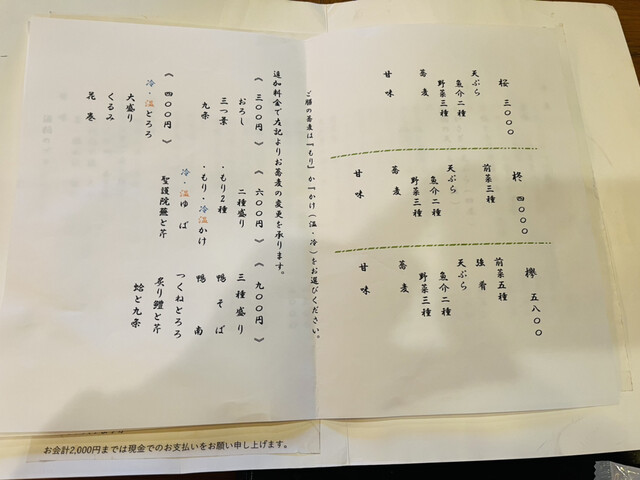 桜 三〇〇〇
天ぷら
魚介二種
野菜三種
蕎麦
甘味
柊 四〇〇〇
前菜三種
天ぷら
魚介二種
野菜三種
蕎麦
甘味
欅 五八〇〇
前菜五種
強肴
天ぷら
魚介二種
野菜三種
蕎麦
甘味
ご膳の蕎麦は『もり』か『かけ(温・冷)をお選びください。
追加料金で左記よりお蕎麦の変更を承ります。
《三〇〇円》
おろし
三つ葉
九条
《四〇〇円》
冷・温とろろ
大盛り
くるみ
花巻
《六〇〇円》
二種盛り
・もり2種
・もり・冷温かけ
冷・温ゆば
聖護院蕪と芹
《九〇〇円》
三種盛り
鴨そば
鴨南
つくねとろろ
炙り鱧と芹
蛤と九条
お会計2,000円までは現金でのお支払いをお願い申し上げます。